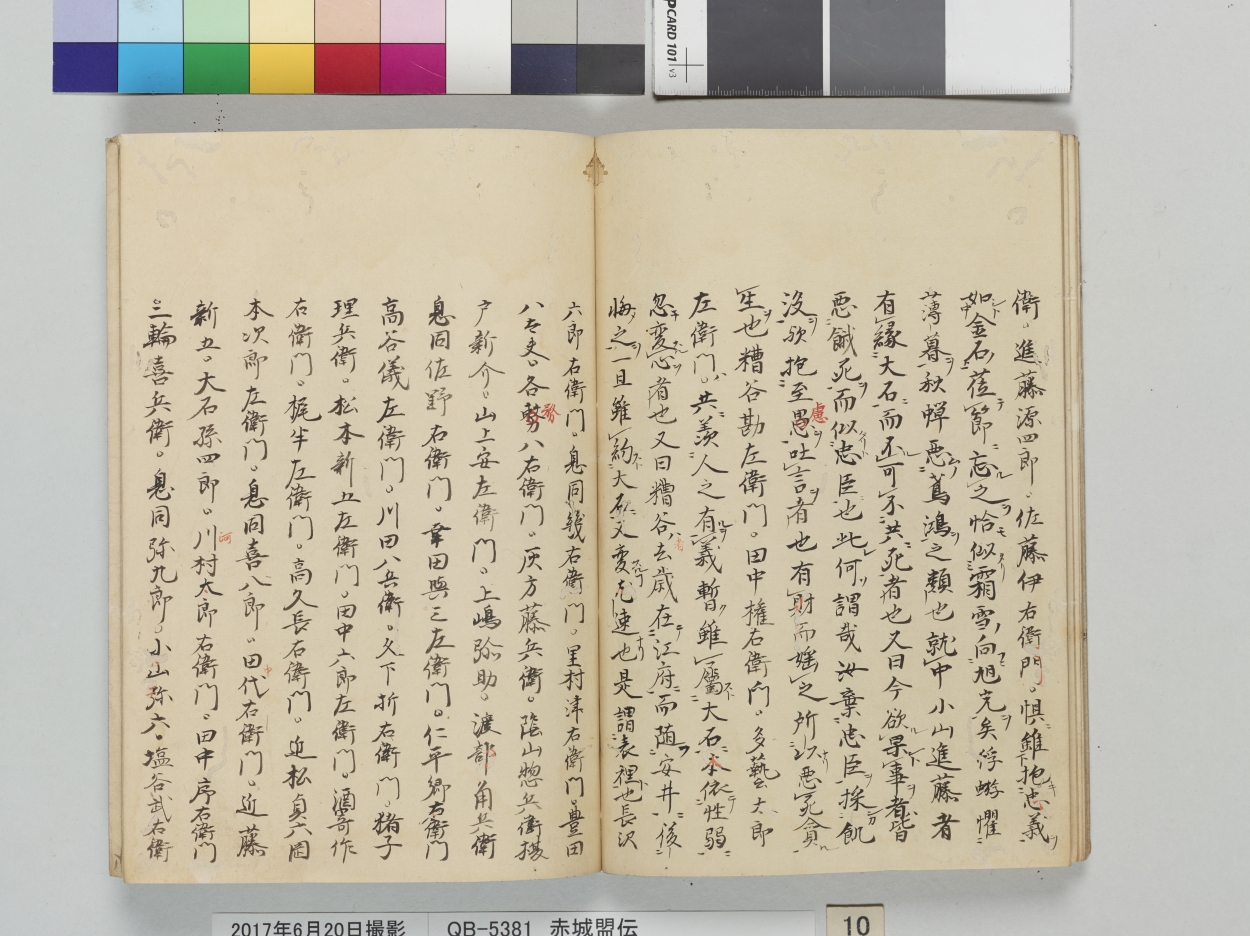 PCARD 101 v3
衛。進藤源四郎。佐藤伊右衛門。惧雖抱忠義
如金石。莅節忘之恰似霜雪向旭光矣。浮蝣懼
薄暮秋蟬悪蔦鴻之類也就中小山進藤者
有縁大石而不可不共死者也又曰今欲果事者皆
悪餓死而似忠臣也此何謂哉汝棄忠臣採飢
没欲抱至愚吐言者也有財而媱之所以悪死貪
慮
生也糟谷勘左衛門。田中権右衛門。多藝太郎
左衛門。共羨人之有義暫雖属大石本依性弱
忽変心者也又曰糟谷去歳在江府而随安井後
悔之一旦雖約大石又変尤速也是謂表裡也長沢
六郎右衛門。息同幾右衛門。里村津右衛門。豊田
八太夫。各務八右衛門。灰方藤兵衛。陰山惣兵衛。揚
戸新介。山上安左衛門。上嶋弥助。渡部角兵衛
息同佐野右衛門。幸田與三左衛門。仁平郷右衛門
高谷儀左衛門。川田八兵衛。久下折右衛門。猪子
理兵衛。松本新五左衛門。田中六郎左衛門。酒寄作
右衛門。梶半左衛門。高久長右衛門。近松貞六。岡
本次郎左衛門。息同喜八郎。田代右衛門。近藤
中
新五。大石孫四郎。川村太郎右衛門。田中序右衛門
河
三輪喜兵衛。息同弥九郎。小山弥六。塩谷武右衛
2017年6月20日撮影 QB-5381 赤城盟伝
10